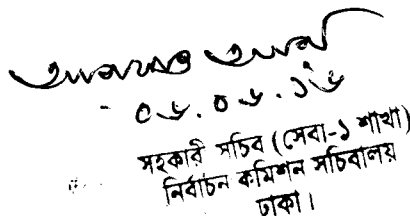 ০৬.০৬.১৬
সহকারী সচিব (সেবা-১ শাখা)
নির্বাচন কমিশন সচিবালয়
ঢাকা।